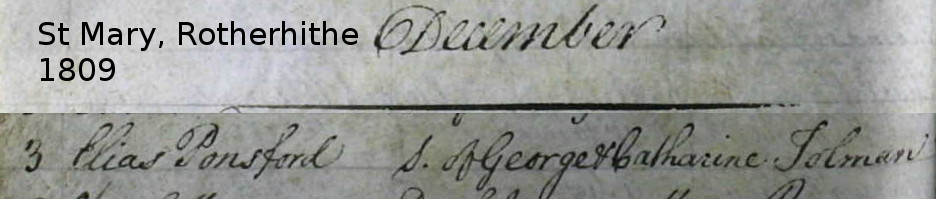 St Mary, Rotherhithe
1809
December
3 Elias Ponsford S. of George & Catharine Tolman